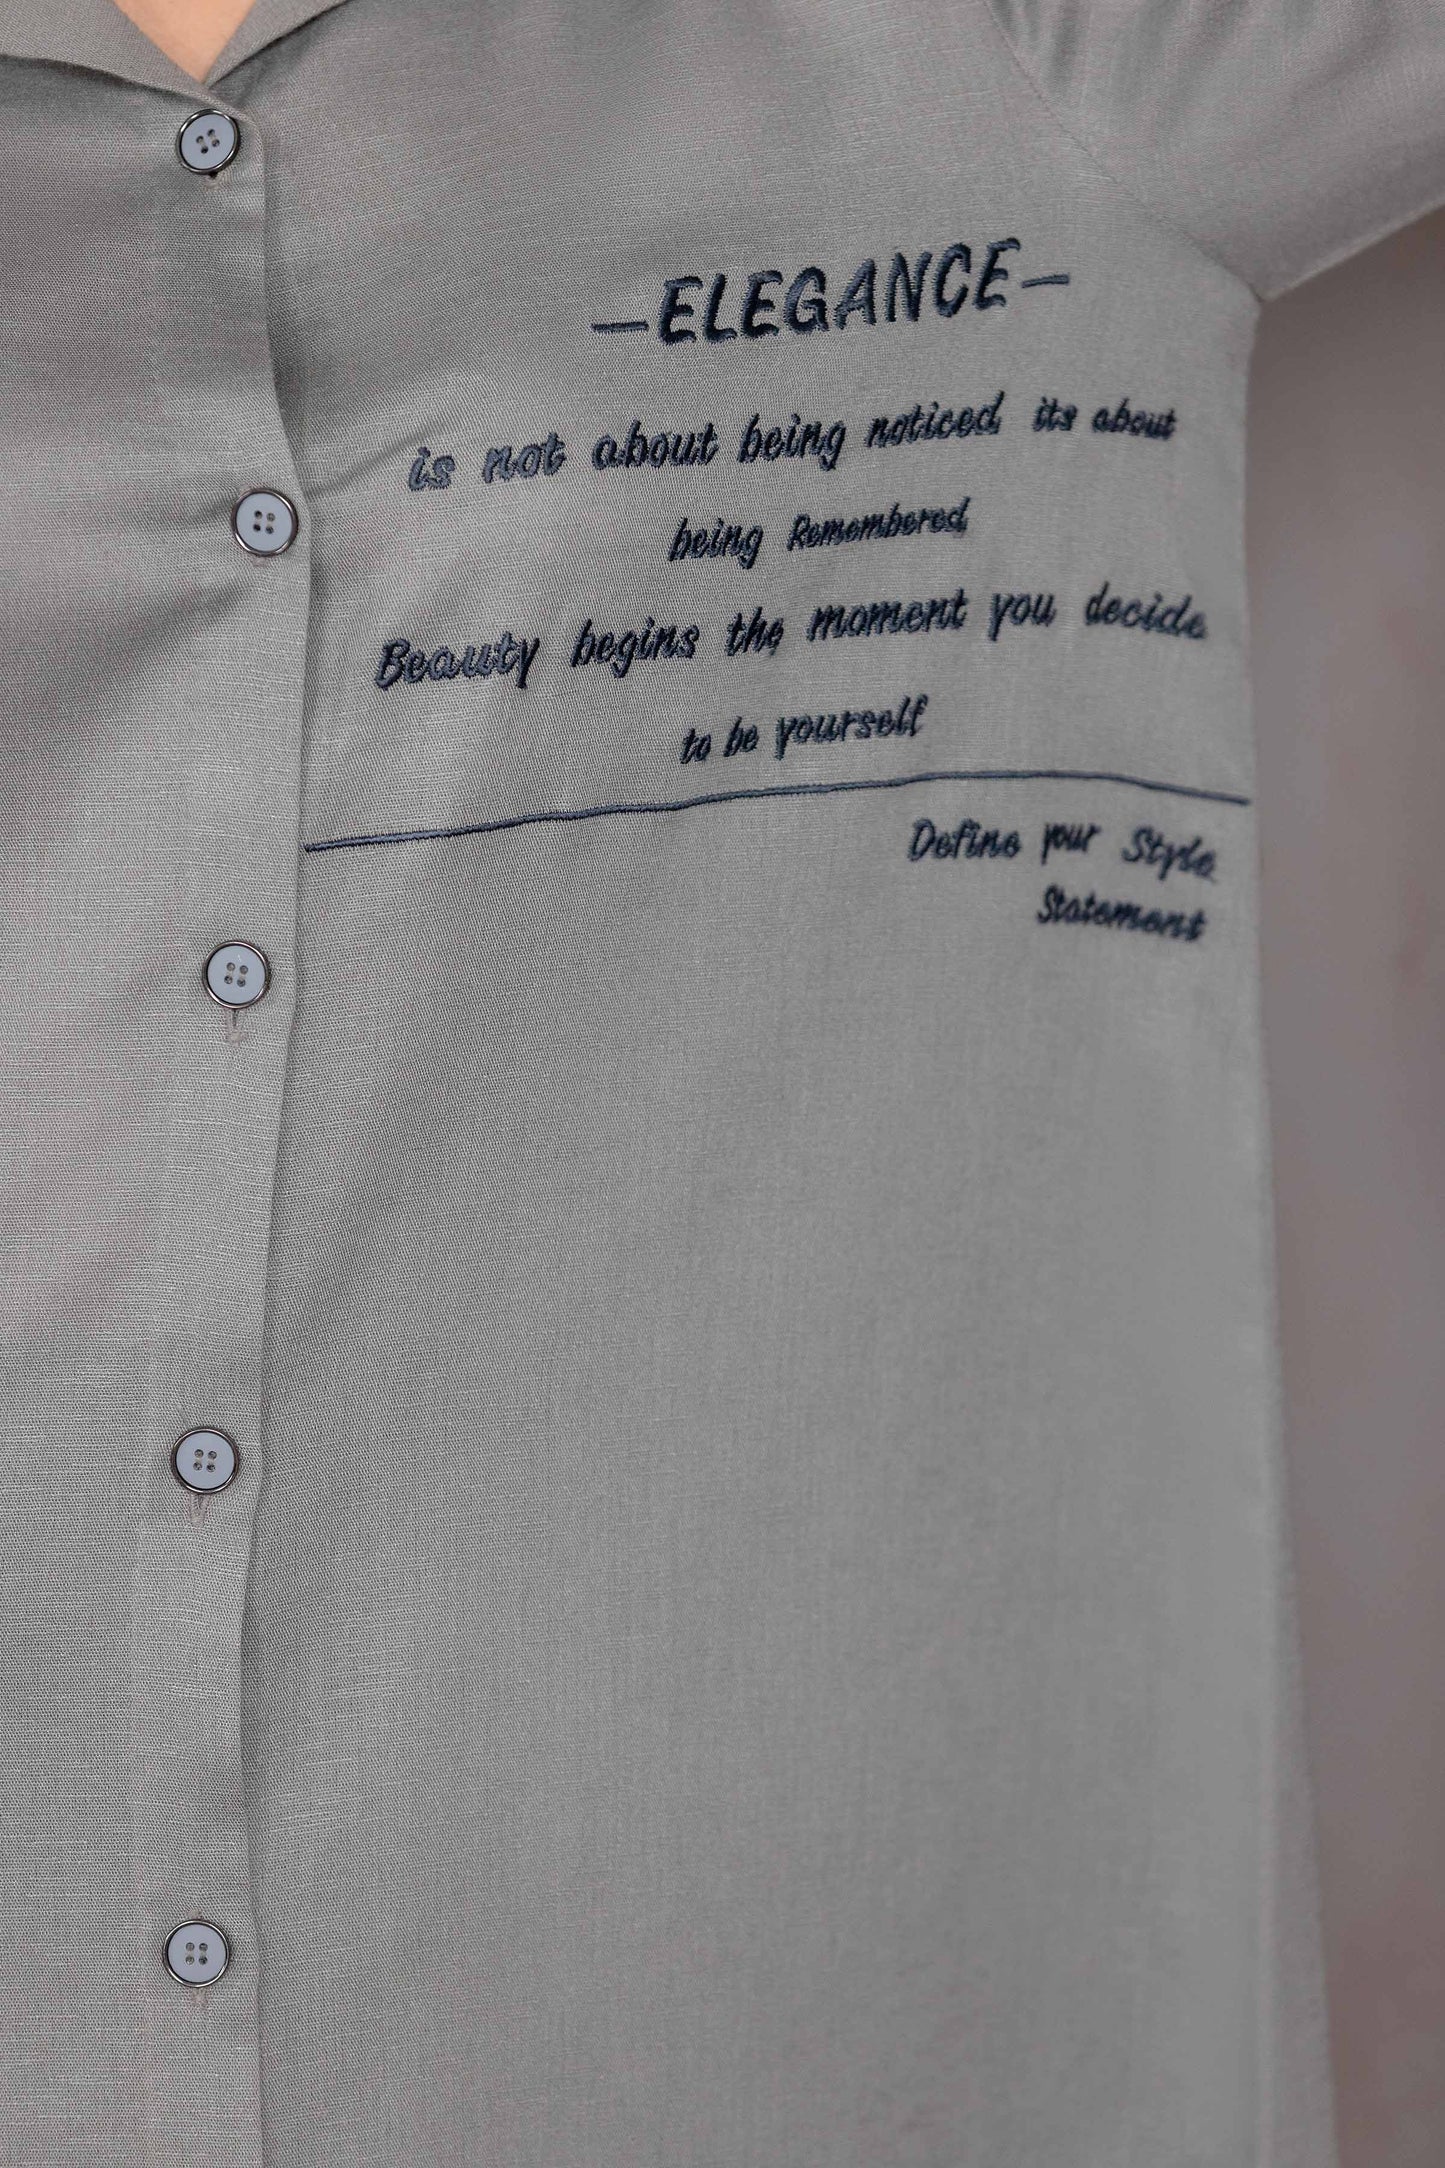 —ELEGANCE—
is not about being noticed its about
being Remembered
Beauty begins the moment you decide
to be yourself
Define your Style
Statement